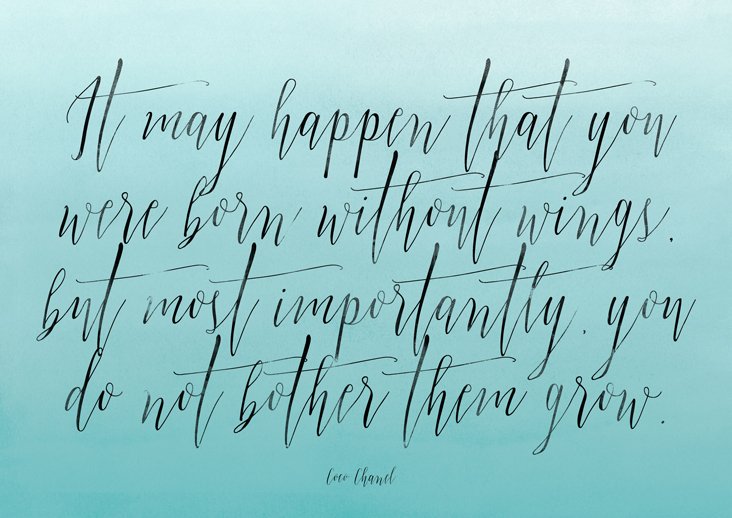 It may happen that you
were born without wings,
but most importantly, you
do not bother them grow.
Coco Chanel